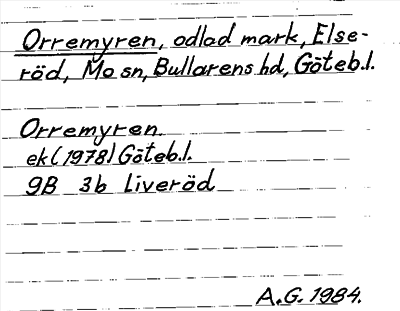 Orremyren, odlad mark, Else-
röd, Mo sn, Bullarens hd, Göteb.l.
Orremyren
ek(1978)Göteb.l.
9B 3b Liveröd
A.G. 1984.